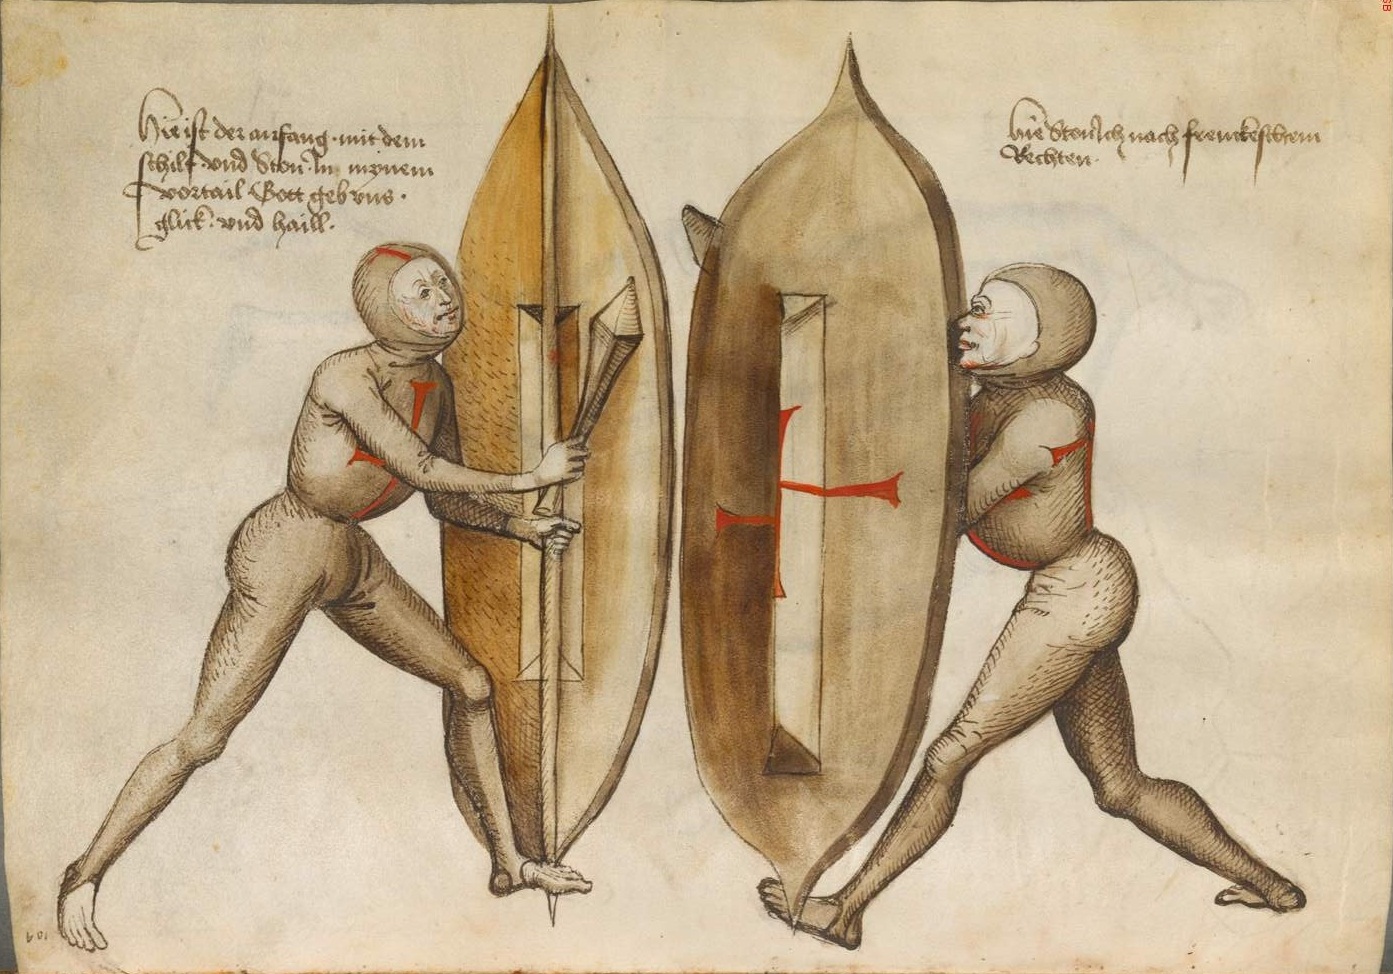 Hie ist der anfang mit dem
schilt vnd Ston Im mynem
vortail Gott geb vns
glück vnd haill
hie Ston Ich nach frenckeschem
Rechten